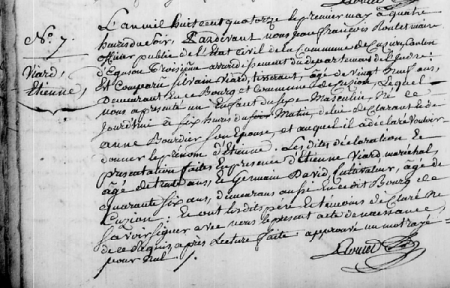 N.º 7.
Viard,
Etienne,
L'an mil huit cent quatorze le premier may à quatre
heures du soir, Pardevant nous jean françois Rollet maire
officier public de l'Etat Civil de la Commune de Cuzion, Canton
d'Eguzon Troisième arrondissement du département de l'indre:
Est Comparu Silvain Viard, tisserant, âgé de vingt neuf ans,
Demeurant en ce Bourg et Commune de Cuzion, Lequel
nous a présenté un Enfant du sexe Masculin, né le
jourd'hui à six heures du Matin, de lui Déclarant et de
anne Bourdier son Epouse, et auquel il a déclaré vouloir
donner le prénom d'Etienne. Les dites déclaration et
présentation faites en présence d'Etienne Viard, maréchal,
âgé de trente ans, et Germain David, Cultivateur, âgé de
quarante six ans, demeurans aussi en ce dit Bourg de
Cuzion: et ont les dits père et témoins déclaré ne
savoir signer avec nous le présent acte de naissance,
de ce Requis après Lecture faite. approuvé un mot rayé
pour nul.